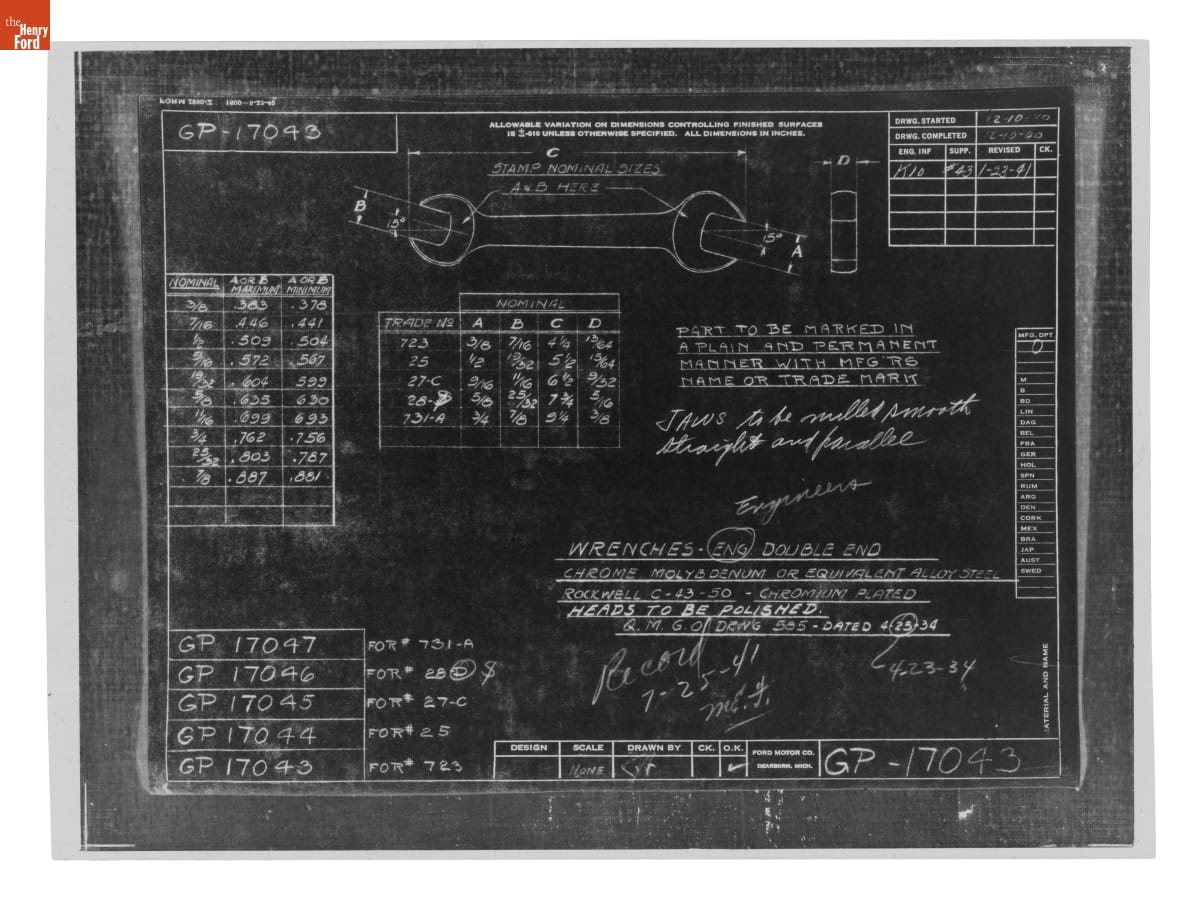 the
Henry
Ford
FORM 2890-Z 1800-8-23-40
GP-17043
ALLOWABLE VARIATION ON DIMENSIONS CONTROLLING FINISHED SURFACES
IS ±.010 UNLESS OTHERWISE SPECIFIED. ALL DIMENSIONS IN INCHES.
DRWG. STARTED 12-10-40
DRWG. COMPLETED 12-10-40
ENG. INF SUPP. REVISED CK.
K10 #43 1-23-41
C
STAMP NOMINAL SIZES
A & B HERE
B
15°
15°
A
D
NOMINAL A OR B MAXIMUM A OR B MINIMUM
3/8 .383 .378
7/16 .446 .441
1/2 .509 .504
9/16 .572 .567
19/32 .604 599
5/8 .635 630
11/16 .699 693
3/4 .762 .756
25/32 .803 .787
7/8 .887 .881
NOMINAL
TRADE Nº A B C D
723 3/8 7/16 4 1/4 13/64
25 1/2 19/32 5 1/2 15/64
27-C 9/16 11/16 6 1/2 9/32
28-S 5/8 25/32 7 3/4 5/16
731-A 3/4 7/8 9 1/4 3/8
PART TO BE MARKED IN
A PLAIN AND PERMANENT
MANNER WITH MFG'RS
NAME OR TRADE MARK
JAWS to be milled smooth
straight and parallel
Engineers
WRENCHES-ENG DOUBLE END
CHROME MOLYBDENUM OR EQUIVALENT ALLOY STEEL
ROCKWELL C-43-50 - CHROMIUM PLATED
HEADS TO BE POLISHED.
Q.M.G.O. DRWG 585-DATED 4-25-34
4-23-34
Record
7-25-41
MFG. DPT
O
M
B
BD
LIN
DAG
BEL
FRA
GER
HOL
SPN
RUM
ARG
DEN
CORK
MEX
BRA
JAP
AUST
SWED
MATERIAL AND NAME
GP 17047 FOR# 731-A
GP 17046 FOR# 28 S
GP 17045 FOR# 27-C
GP 17044 FOR# 25
GP 17043 FOR# 723
DESIGN SCALE DRAWN BY CK. O.K.
NONE
FORD MOTOR CO.
DEARBORN, MICH.
GP-17043